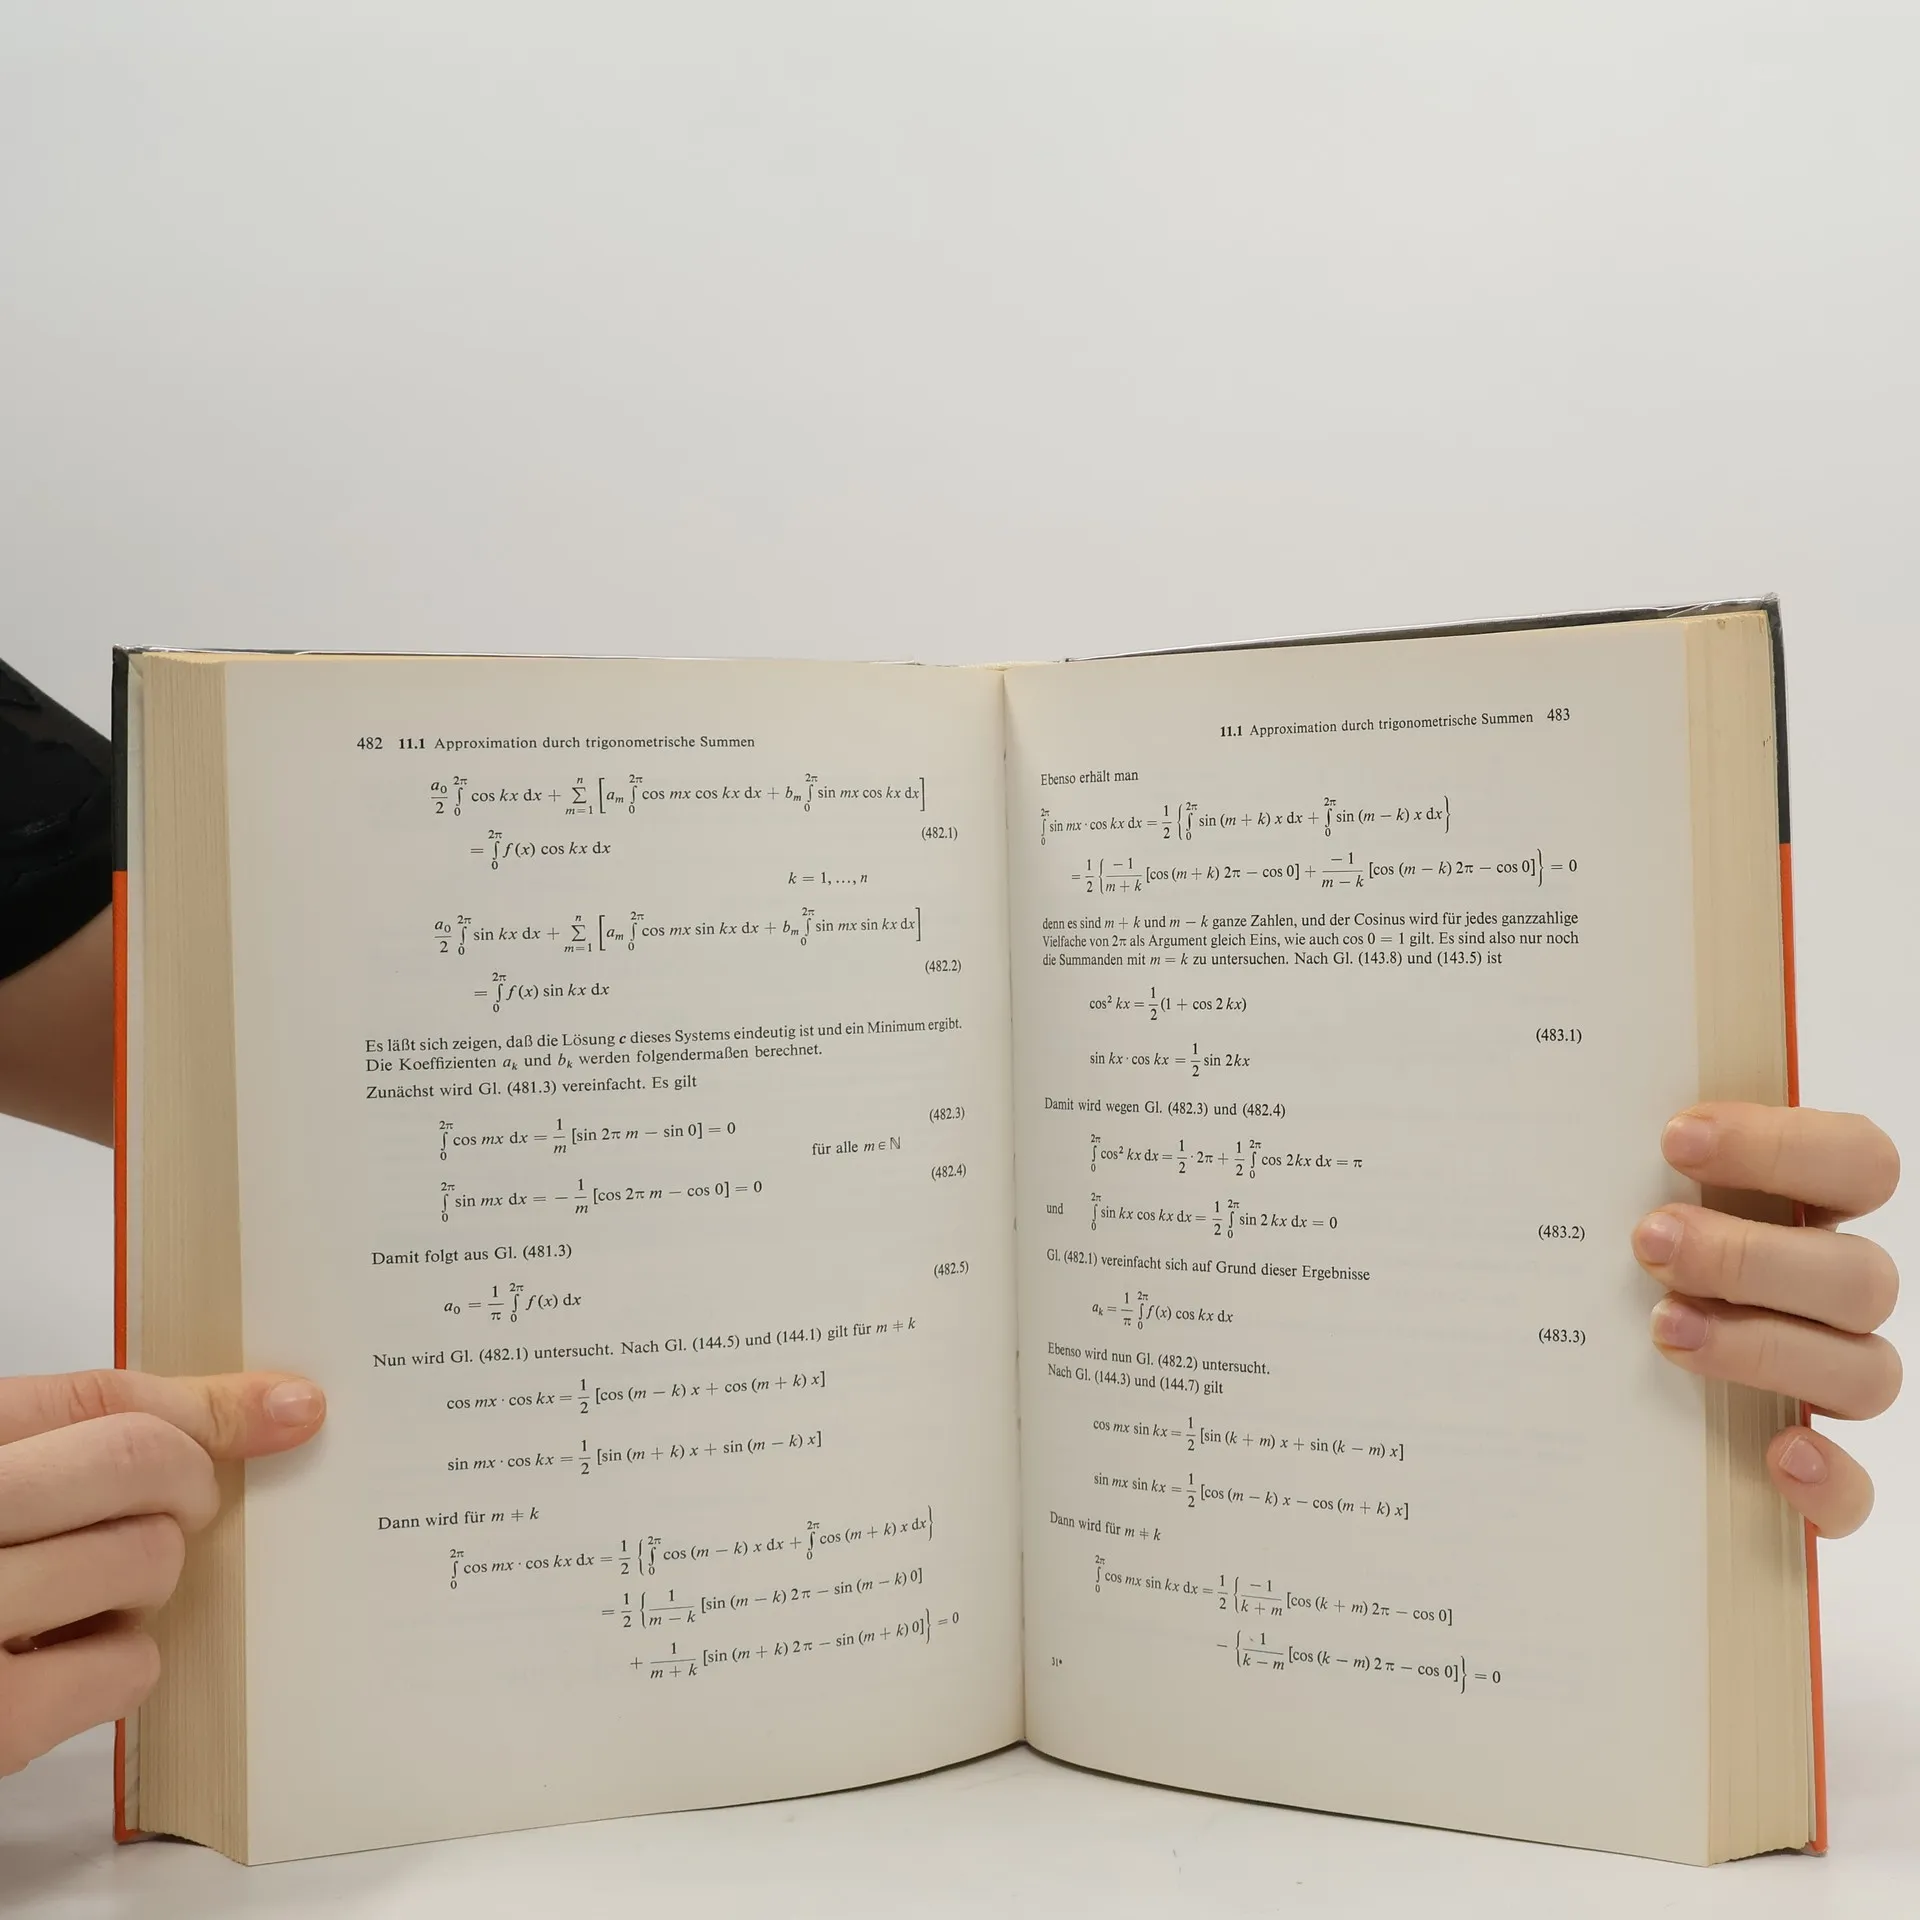 482 11.1 Approximation durch trigonometrische Summen
a₀/2 ∫₀^2π cos kx dx + Σ_{m=1}^n [aₘ ∫₀^2π cos mx cos kx dx + bₘ ∫₀^2π sin mx cos kx dx]
(482.1)
= ∫₀^2π f(x) cos kx dx
k = 1, ..., n
a₀/2 ∫₀^2π sin kx dx + Σ_{m=1}^n [aₘ ∫₀^2π cos mx sin kx dx + bₘ ∫₀^2π sin mx sin kx dx]
(482.2)
= ∫₀^2π f(x) sin kx dx
Es läßt sich zeigen, daß die Lösung c dieses Systems eindeutig ist und ein Minimum ergibt.
Die Koeffizienten aₖ und bₖ werden folgendermaßen berechnet.
Zunächst wird Gl. (481.3) vereinfacht. Es gilt
∫₀^2π cos mx dx = 1/m [sin 2π m − sin 0] = 0 (482.3)
für alle m ∈ ℕ
∫₀^2π sin mx dx = − 1/m [cos 2π m − cos 0] = 0 (482.4)
Damit folgt aus Gl. (481.3)
a₀ = 1/π ∫₀^2π f(x) dx (482.5)
Nun wird Gl. (482.1) untersucht. Nach Gl. (144.5) und (144.1) gilt für m ≠ k
cos mx · cos kx = 1/2 [cos (m − k) x + cos (m + k) x]
sin mx · cos kx = 1/2 [sin (m + k) x + sin (m − k) x]
Dann wird für m ≠ k
∫₀^2π cos mx · cos kx dx = 1/2 {∫₀^2π cos (m − k) x dx + ∫₀^2π cos (m + k) x dx}
= 1/2 {1/(m − k) [sin (m − k) 2π − sin (m − k) 0]
+ 1/(m + k) [sin (m + k) 2π − sin (m + k) 0]} = 0
11.1 Approximation durch trigonometrische Summen 483
Ebenso erhält man
∫₀^2π sin mx · cos kx dx = 1/2 {∫₀^2π sin (m + k) x dx + ∫₀^2π sin (m − k) x dx}
= 1/2 {−1/(m + k) [cos (m + k) 2π − cos 0] + −1/(m − k) [cos (m − k) 2π − cos 0]} = 0
denn es sind m + k und m − k ganze Zahlen, und der Cosinus wird für jedes ganzzahlige
Vielfache von 2π als Argument gleich Eins, wie auch cos 0 = 1 gilt. Es sind also nur noch
die Summanden mit m = k zu untersuchen. Nach Gl. (143.8) und (143.5) ist
cos² kx = 1/2 (1 + cos 2 kx)
(483.1)
sin kx · cos kx = 1/2 sin 2kx
Damit wird wegen Gl. (482.3) und (482.4)
∫₀^2π cos² kx dx = 1/2 · 2π + 1/2 ∫₀^2π cos 2kx dx = π
und ∫₀^2π sin kx cos kx dx = 1/2 ∫₀^2π sin 2 kx dx = 0 (483.2)
Gl. (482.1) vereinfacht sich auf Grund dieser Ergebnisse
aₖ = 1/π ∫₀^2π f(x) cos kx dx (483.3)
Ebenso wird nun Gl. (482.2) untersucht.
Nach Gl. (144.3) und (144.7) gilt
cos mx sin kx = 1/2 [sin (k + m) x + sin (k − m) x]
sin mx sin kx = 1/2 [cos (m − k) x − cos (m + k) x]
Dann wird für m ≠ k
∫₀^2π cos mx sin kx dx = 1/2 {−1/(k + m) [cos (k + m) 2π − cos 0]
− {1/(k − m) [cos (k − m) 2π − cos 0]} = 0
31*